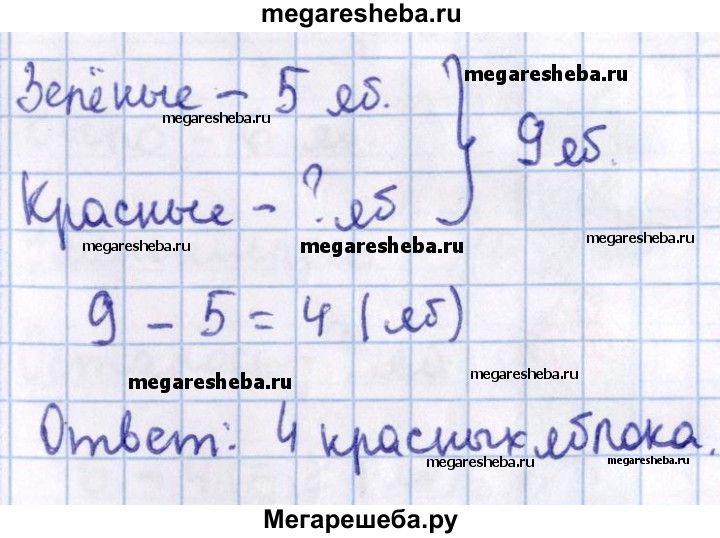 megaresheba.ru
Зелёные – 5 яб.
megaresheba.ru
megaresheba.ru
9 яб.
Красные – ? яб
megaresheba.ru
megaresheba.ru
megaresheba.ru
9 – 5 = 4 (яб)
megaresheba.ru
megaresheba.ru
Ответ: 4 красных яблока.
megaresheba.ru
megaresheba.ru
megaresheba.ru
Мегарешеба.ру